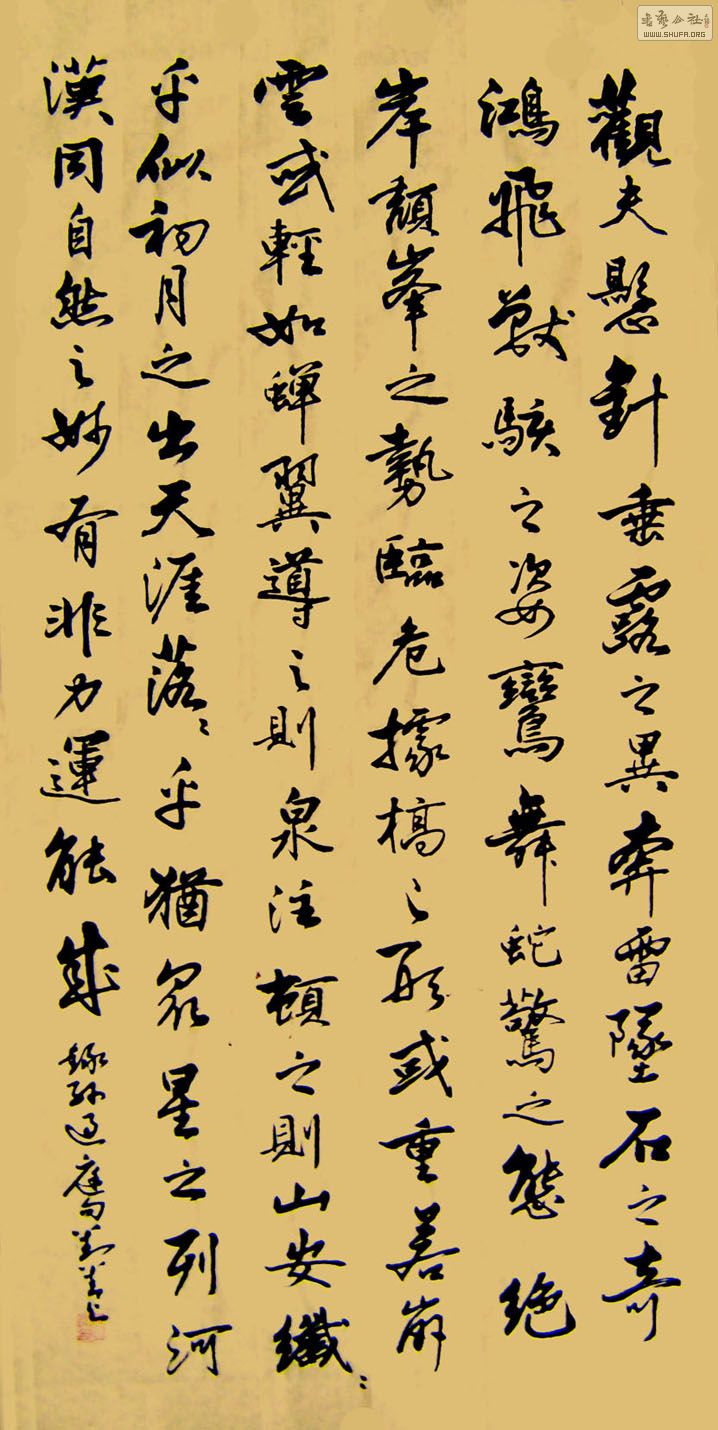 觀夫懸針垂露之異奔雷墜石之奇
鴻飛獸駭之姿鸞舞蛇驚之態絶
岸頹峯之勢臨危據槁之形或重若崩
雲或輕如蟬翼導之則泉注頓之則山安纖〻
乎似初月之出天涯落〻乎猶衆星之列河
漢同自然之妙有非力運能成
錄孫過庭句
書藝公社
WWW.SHUFA.ORG